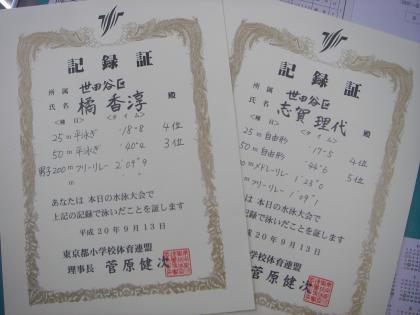 記録証
所属 世田谷区
氏名 橘 香淳 殿
<種目> <タイム>
25m平泳ぎ '18"8 4位
50m平泳ぎ '40"2 3位
男子200mフリーリレー 2'09"9
m
あなたは本日の水泳大会で
上記の記録で泳いだことを証します
平成20年9月13日
東京都小学校体育連盟
理事長 菅原健次
記録証
所属 世田谷区
氏名 志賀 理代 殿
<種目> <タイム>
25m自由形 '17"5 4位
50m自由形 '44"6 5位
mメドレーリレー 1'23"0
mフリーリレー 1'09"1
あなたは本日の水泳大会で
上記の記録で泳いだことを証します
平成20年9月13日
東京都小学校体育連盟
理事長 菅原健次